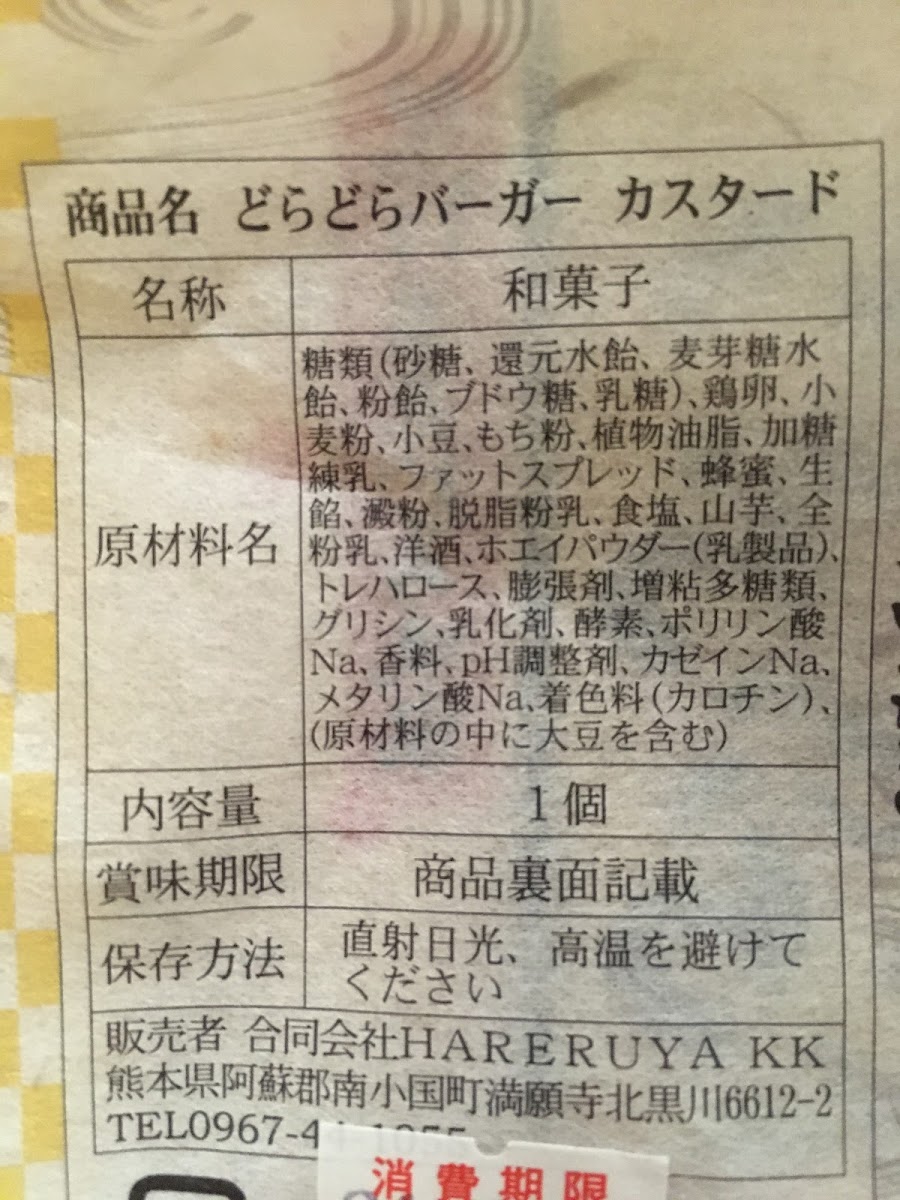 商品名 どらどらバーガー カスタード
名称 和菓子
原材料名
糖類(砂糖、還元水飴、麦芽糖水
飴、粉飴、ブドウ糖、乳糖)、鶏卵、小
麦粉、小豆、もち粉、植物油脂、加糖
練乳、ファットスプレッド、蜂蜜、生
餡、澱粉、脱脂粉乳、食塩、山芋、全
粉乳、洋酒、ホエイパウダー(乳製品)、
トレハロース、膨張剤、増粘多糖類、
グリシン、乳化剤、酵素、ポリリン酸
Na、香料、pH調整剤、カゼインNa、
メタリン酸Na、着色料(カロチン)、
(原材料の中に大豆を含む)
内容量 1個
賞味期限 商品裏面記載
保存方法 直射日光、高温を避けて
ください
販売者 合同会社HARERUYA KK
熊本県阿蘇郡南小国町満願寺北黒川6612-2
TEL0967-4
消費期限